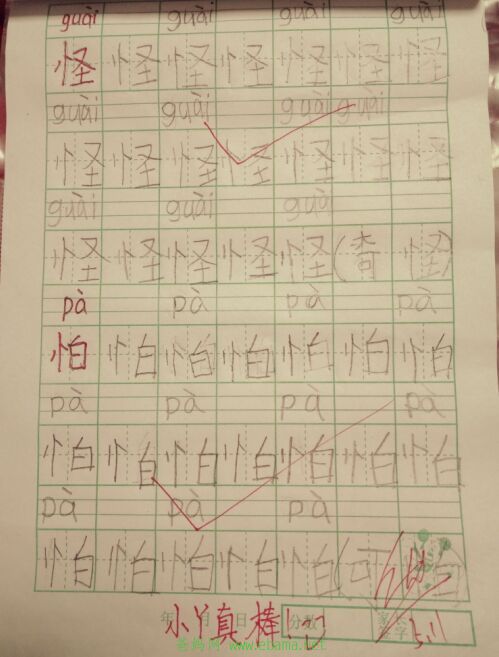 guài guài guài guài
怪 怪 怪 怪 怪 怪 怪
guài guài guài guài
怪 怪 怪 怪 怪 怪 怪
guài guài guài
怪 怪 怪 怪 怪 (奇 怪)
pà pà pà pà
怕 怕 怕 怕 怕 怕 怕
pà pà pà pà
怕 怕 怕 怕 怕 怕 怕
pà pà pà
怕 怕 怕 怕 怕 (可 怕
年 月 日 分数 家长签字
小丫真棒! 5.11
爸妈网 www.ebama.net